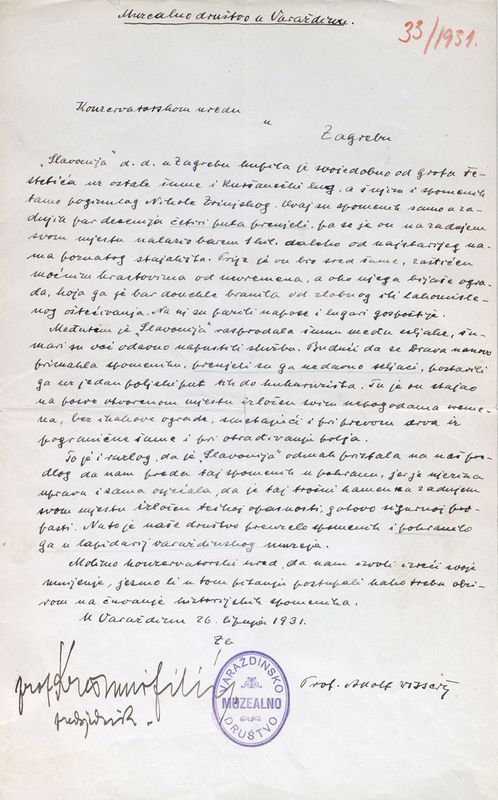 Muzealno društvo u Varaždinu.
33/1931.
Konzervatorskom uredu
u
Zagrebu
„Slavonija" d. d. u Zagrebu kupila je svojedobno od grofa Fe-
stetića uz ostale šume i Kuršanečki lug, a s njim i spomenik
tamo poginulog Nikole Zrinjskog. Ovaj su spomenik samo u za-
dnjih par decenija četiri puta prenijeli, pa se je on na zadnjem
svom mjestu nalazio barem 1 kil. daleko od najstarijeg na-
ma poznatog stajališta. Prije je on bio sred šume, zaštićen
moćnim hrastovima od nevremena, a oko njega bijaše ogra-
da, koja ga je bar donekle branila od zlobnog ili lakomisle-
nog oštećivanja. Na nj su pazili napose i lugari gospoštije.
Međutim je „Slavonija" rasprodala šumu među seljake, šu-
mari su već odavno napustili službu. Budući da se Drava nanovo
primakla spomeniku, prenijeli su ga nedavno seljaci, postavili
ga uz jedan poljski put tik do kukuružišta. Tu je on stajao
na posve otvorenom mjestu izložen svim nepogodama vreme-
na, bez ikakove ograde, smetajući i pri prevozu drva iz
pogranične šume i pri obrađivanju polja.
To je i razlog, da je „Slavonija" odmah pristala na naš pre-
dlog da nam preda taj spomenik u pohranu, jer je njezina
uprava i sama osjećala, da je taj trošni kamen na zadnjem
svom mjestu izložen teškoj opasnosti, gotovo sigurnoj pro-
pasti. Na to je naše društvo preuzelo spomenik i pohranilo
ga u lapidarij varaždinskog muzeja.
Molimo konzervatorski ured, da nam izvoli izreći svoje
mnijenje, jesmo li u tom pitanju postupali kako treba obzi-
rom na čuvanje historijskih spomenika.
U Varaždinu 26. lipnja 1931.
Za
prof. Krešimir Filić
predsjednik
VARAŽDINSKO
MUZEALNO
DRUŠTVO
Prof. Adolf Wissert